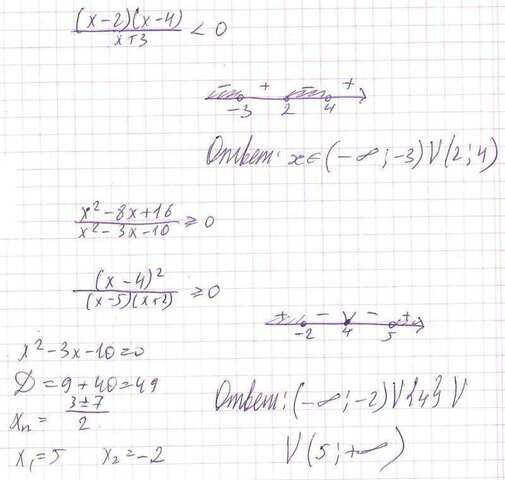 (x-2)(x-4)/x+3 < 0
- + - +
-3 2 4
Ответ: x∈(-∞;-3)V(2;4)
x²-8x+16/x²-3x-10 ≥ 0
(x-4)²/(x-5)(x+2) ≥ 0
+ - V - +
-2 4 5
x²-3x-10=0
D=9+40=49
xₙ= 3±7/2
x₁=5 x₂=-2
Ответ: (-∞;-2)V{4}V
V(5;+∞)